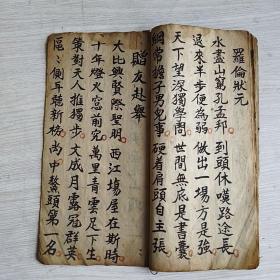 羅倫狀元
水盡山窮孔孟邦　到頭休嘆路途長
退來半步便為弱　做出一場方是強
天下望深獨學問　世間無底是書囊
綱常擔子男兒事　硬着肩頭自主張
贈友赴舉
大比興賢際聖明　西江塲屋在斯時
十年燈火窓前完　萬里青雲足下生
策對天人推獨步　文成月露冠群英
區〻側耳聽新榜　尚中鰲頭第一名